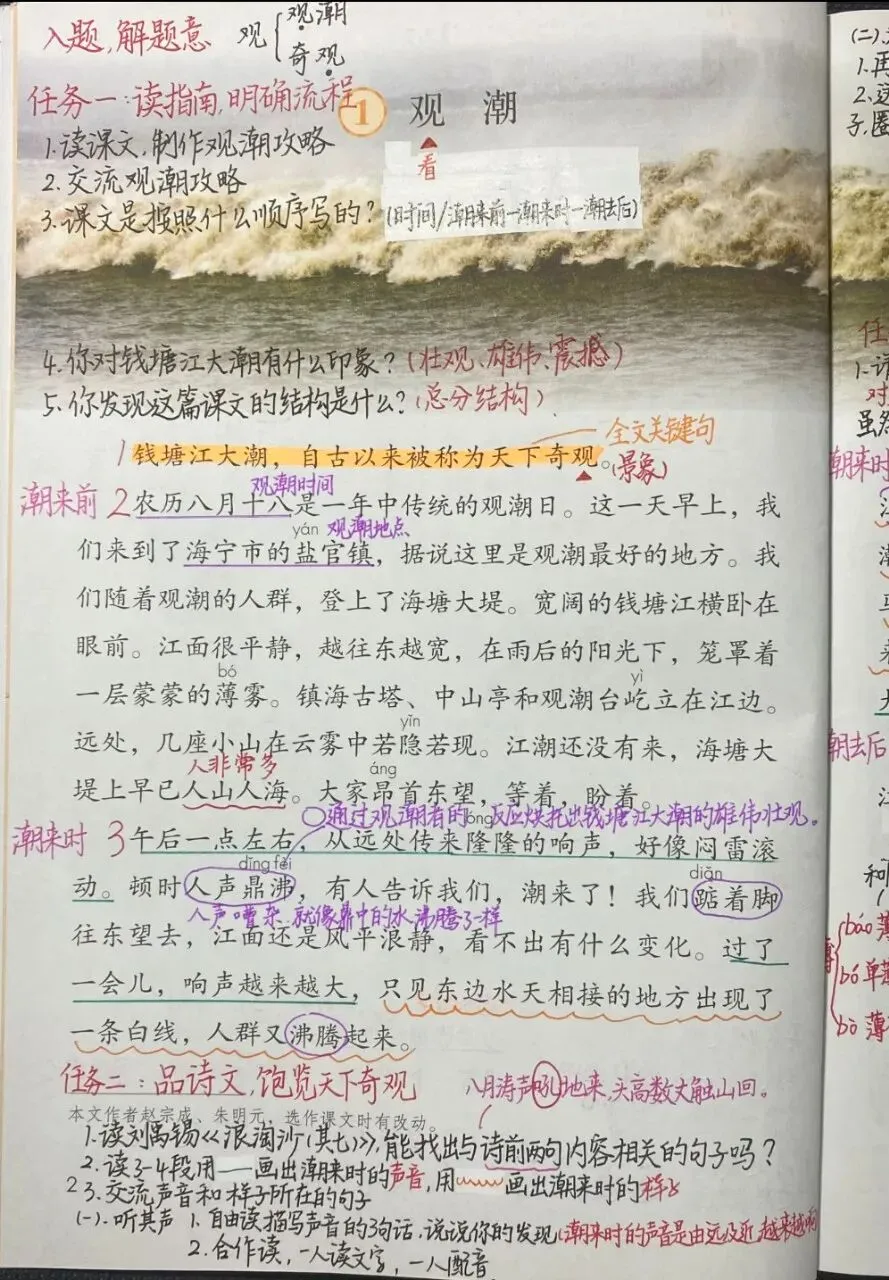 入题,解题意 观{观潮
奇观
任务一:读指南,明确流程
1 观 潮
看
1.读课文,制作观潮攻略
2.交流观潮攻略
3.课文是按照什么顺序写的?(时间/潮来前一潮来时一潮去后)
4.你对钱塘江大潮有什么印象?(壮观、雄伟、震撼)
5.你发现这篇课文的结构是什么?(总分结构)
全文关键句
1 钱塘江大潮,自古以来被称为天下奇观。(景象)
观潮时间
潮来前 2 农历八月十八是一年中传统的观潮日。这一天早上,我
yán 观潮地点
们来到了海宁市的盐官镇,据说这里是观潮最好的地方。我
们随着观潮的人群,登上了海塘大堤。宽阔的钱塘江横卧在
眼前。江面很平静,越往东越宽,在雨后的阳光下,笼罩着
bó yì
一层蒙蒙的薄雾。镇海古塔、中山亭和观潮台屹立在江边。
yǐn
远处,几座小山在云雾中若隐若现。江潮还没有来,海塘大
人非常多 áng
堤上早已人山人海。大家昂首东望,等着,盼着。
通过观潮者的反应烘托出钱塘江大潮的雄伟壮观。
lóng
潮来时 3 午后一点左右,从远处传来隆隆的响声,好像闷雷滚
dǐng fèi diǎn
动。顿时人声鼎沸,有人告诉我们,潮来了!我们踮着脚
人声嘈杂,就像鼎中的水沸腾了一样
往东望去,江面还是风平浪静,看不出有什么变化。过了
一会儿,响声越来越大,只见东边水天相接的地方出现了
一条白线,人群又沸腾起来。
任务二:品诗文,饱览天下奇观
八月涛声吼地来,头高数丈触山回。
本文作者赵宗成、朱明元,选作课文时有改动。
1.读刘禹锡《浪淘沙(其七)》,能找出与诗前两句内容相关的句子吗?
2.读3-4段用——画出潮来时的声音,用﹏﹏画出潮来时的样子
2
3.交流声音和样子所在的句子
(一).听其声 1.自由读描写声音的3句话,说说你的发现(潮来时的声音是由远及近,越来越响
2.合作读,一人读文字,一人配音
(二).
1.再
2.这
子,圈
任
1.请
对
虽然
潮来时
潮去后
和
báo 薄
bó 单薄
bò 薄